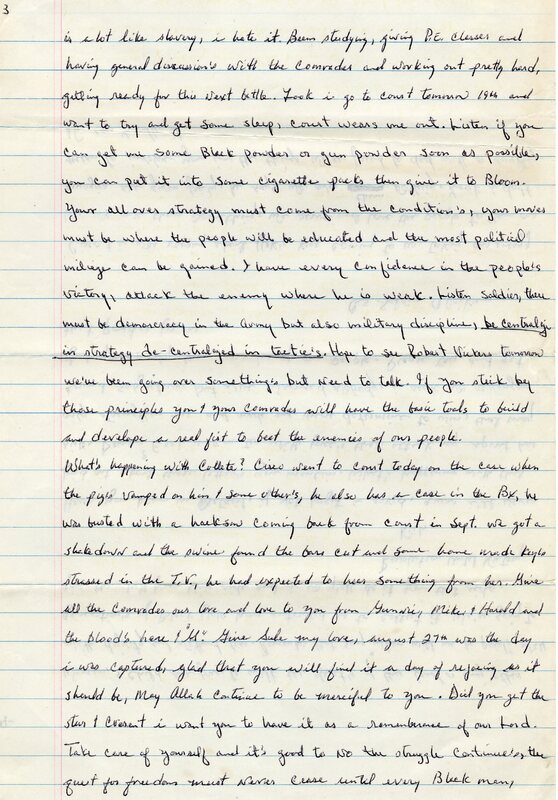 3
is alot like slavery, i hate it. Been studying, giving P.E. classes and
having general disscussion's with the comrades and working out pretty hard,
getting ready for this next battle. Look i go to court tomorrow 19th and
want to try and get some sleep, court wears me out. Listen if you
can get me some Black powder or gun powder soon as possible,
you can put it into some cigarette packs then give it to Bloom.
Your all over strategy must come from the condition's, your moves
must be where the people will be educated and the most political
milege can be gained. I have every confidence in the people's
victory, attack the enemy where he is weak. Listen Soldier, there
must be democracy in the Army but also military discipline, be centralize
in strategy de-centralized in tactic's. Hope to see Robert Vickers tomorrow
we've been going over something's but need to talk. If you stick by
those principles you & your comrades will have the basic tools to build
and develope a real fist to beat the enemies of our people.
What's happening with Collete? Cisco went to court today on the case when
the pigs vamped on him & some other's, he also has a case in the Bx, he
was busted with a hacksaw coming back from court in Sept. we got a
shakedown and the swine found the bars cut and some home made keys
stressed in the T.V., he had expected to hear something from her. Give
all the comrades our love and love to you from Mike, & Harold and
the blood's here & Give my love, august 27th was the day
i was captured, glad that you will find it a day of rejoicing as it
should be, May Allah continue to be merciful to you. Did you get the
star & cresent i want you to have it as a rememberence of our Lord.
Take care of yourself and it's good to No the struggle continue's, the
quest for freedom must never cease until every Black man,